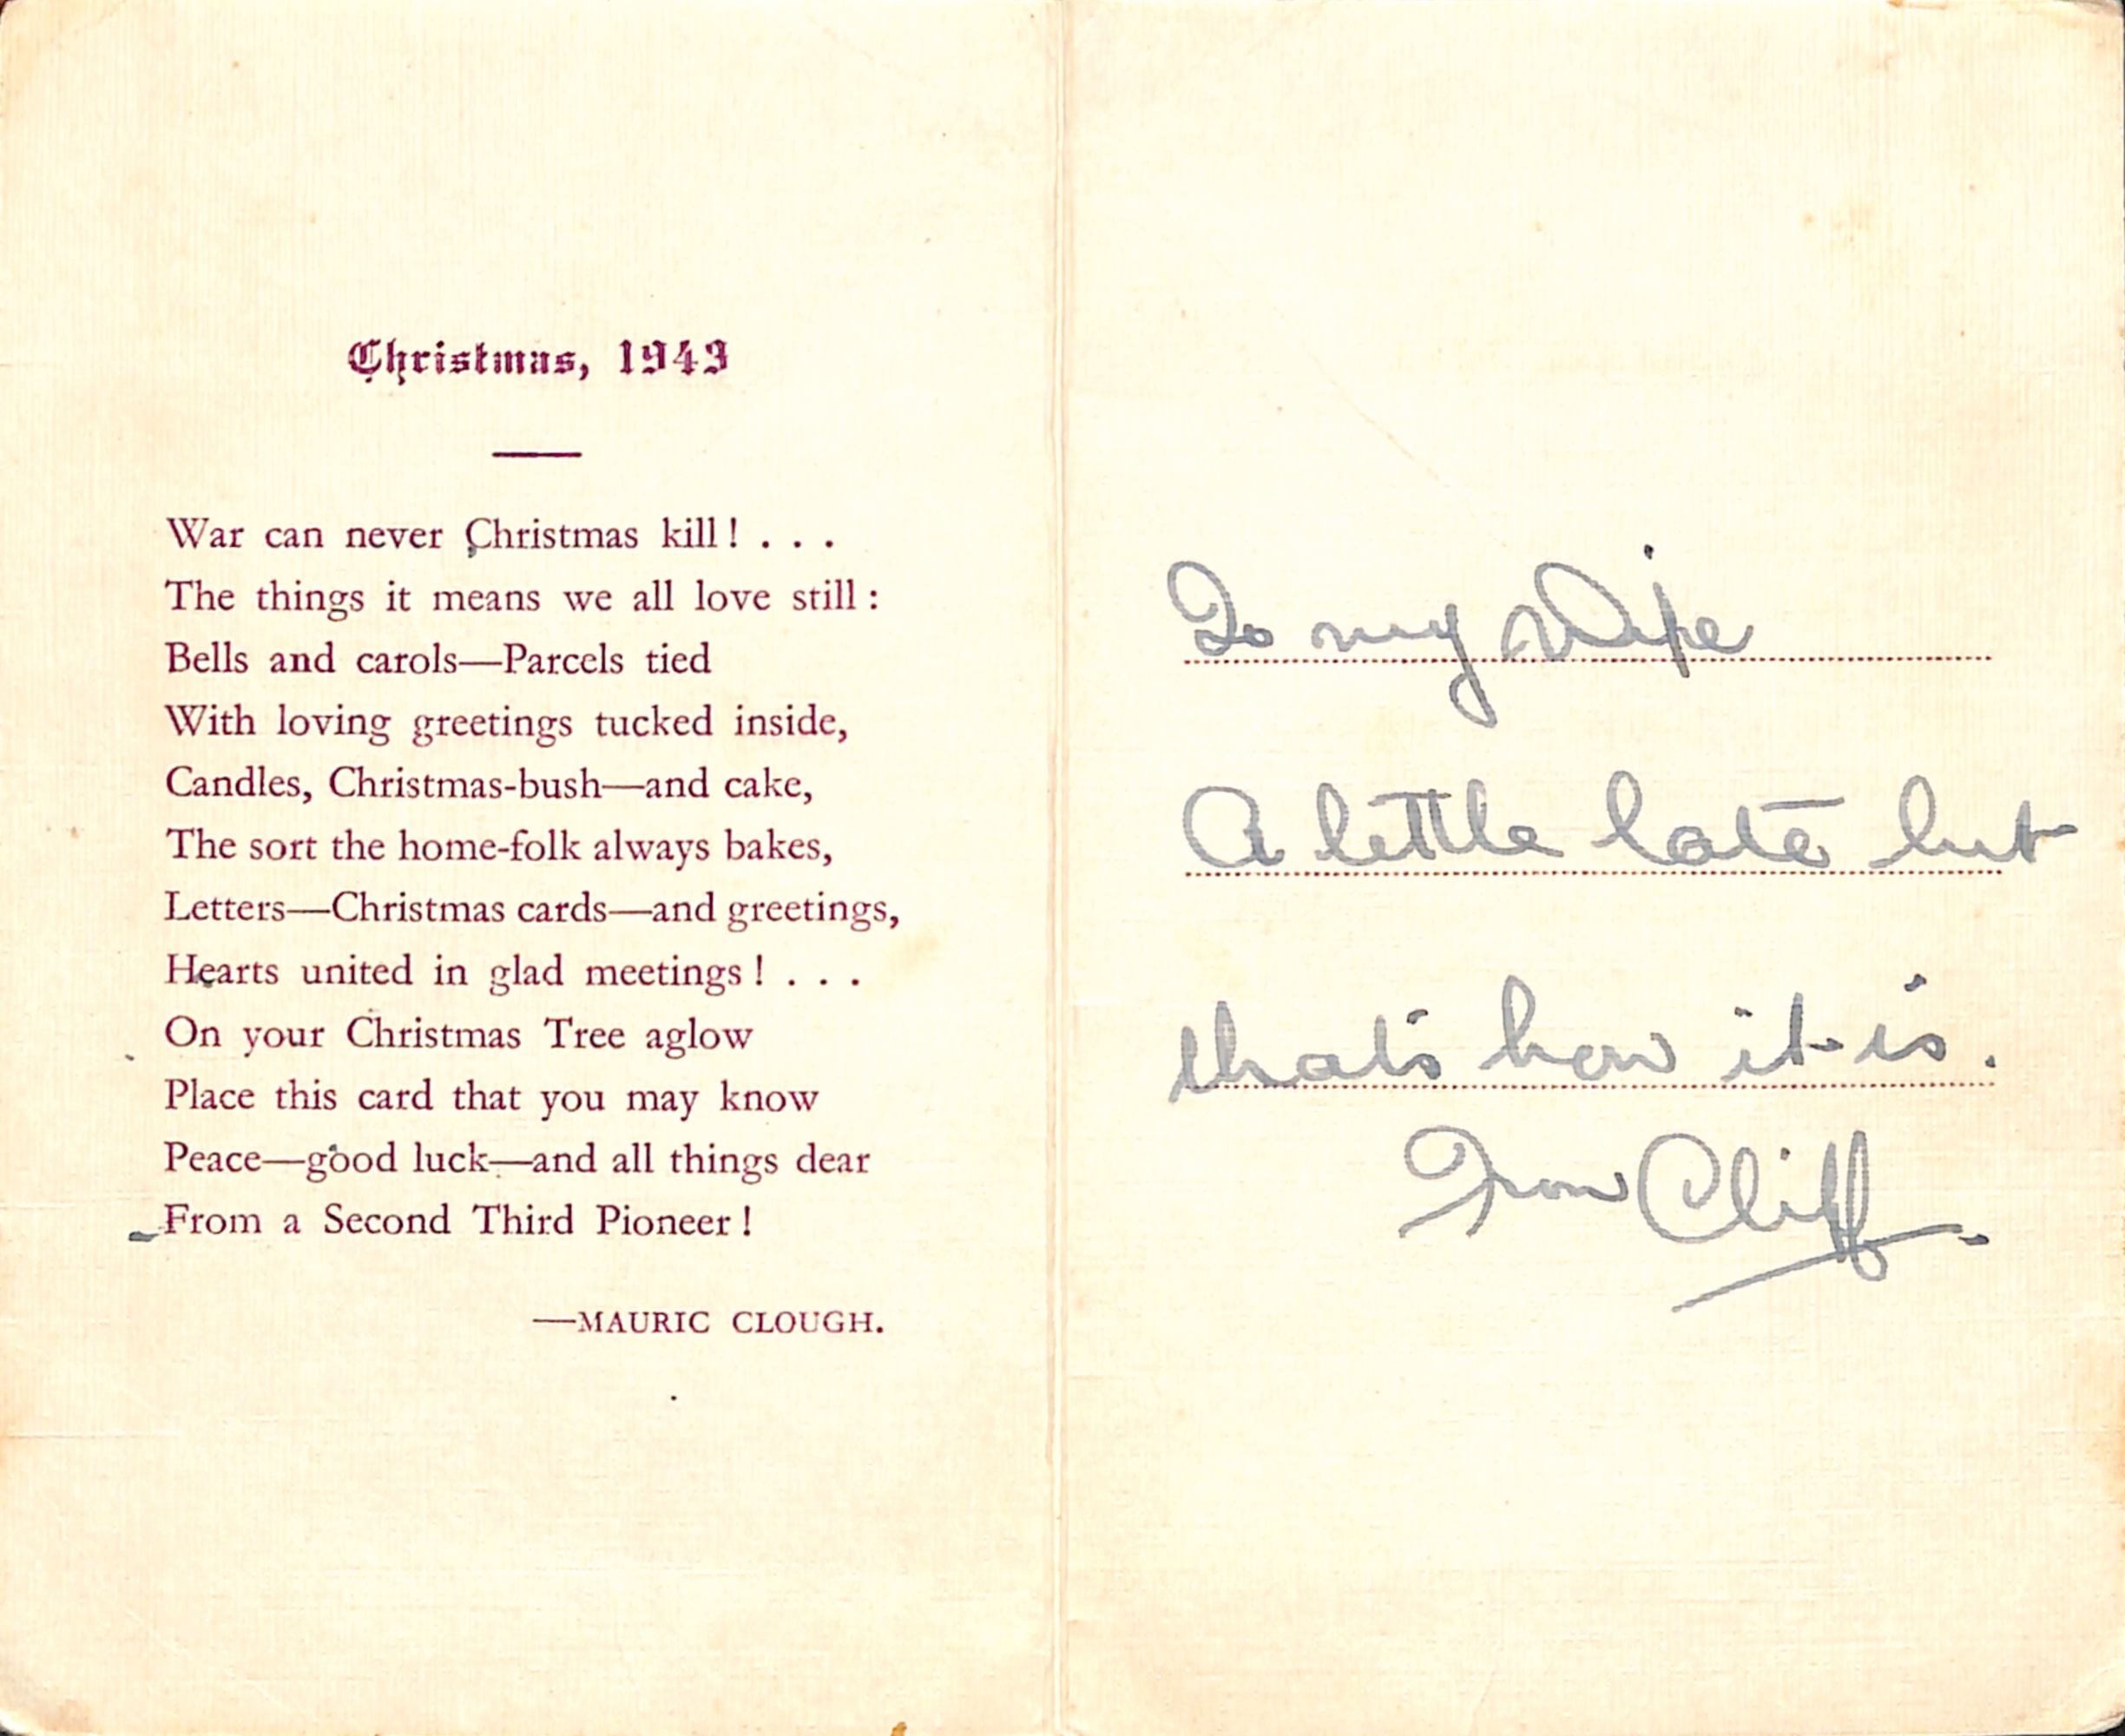 Christmas, 1943
War can never Christmas kill! . . .
The things it means we all love still:
Bells and carols—Parcels tied
With loving greetings tucked inside,
Candles, Christmas-bush—and cake,
The sort the home-folk always bakes,
Letters—Christmas cards—and greetings,
Hearts united in glad meetings! . . .
On your Christmas Tree aglow
Place this card that you may know
Peace—good luck—and all things dear
From a Second Third Pioneer!
—MAURIC CLOUGH.
To my Wife
A little late but
that's how it is.
From Cliff.